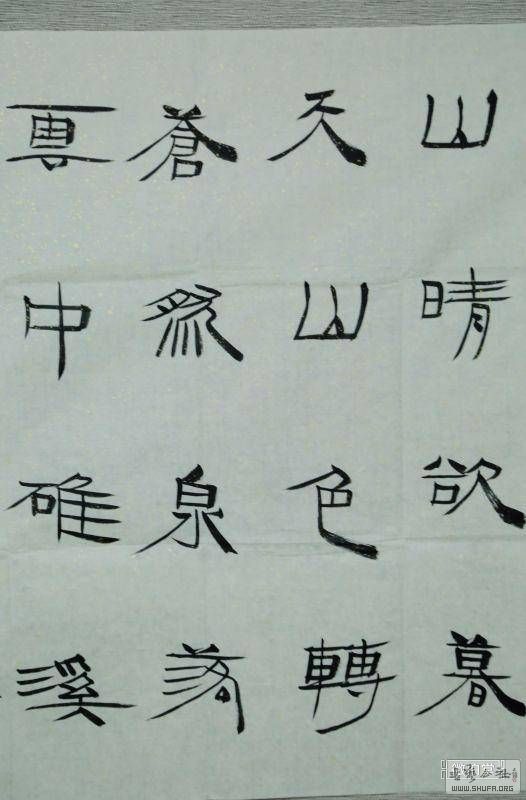 山晴欲暮
天山色轉
蒼然泉落
雲中碓溪
WWW.SHUFA.ORG